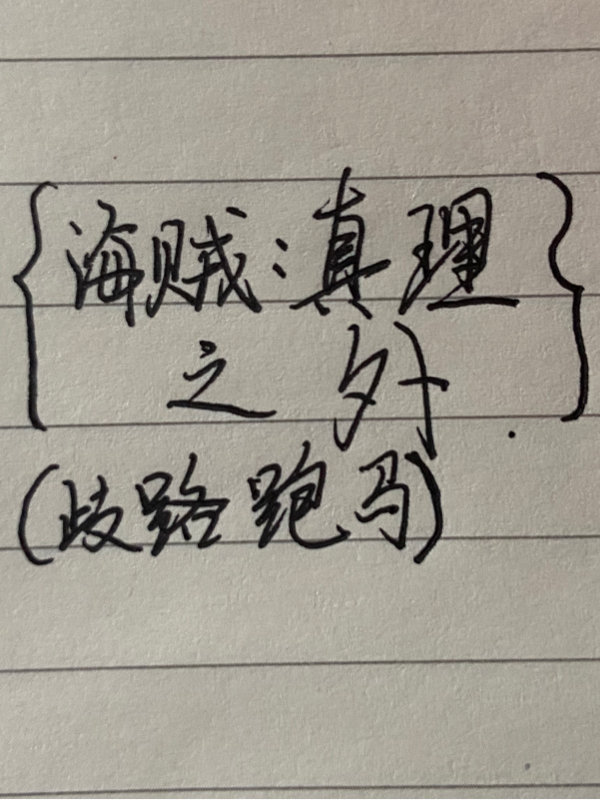 {海贼:真理
之外}
(歧路跑马)